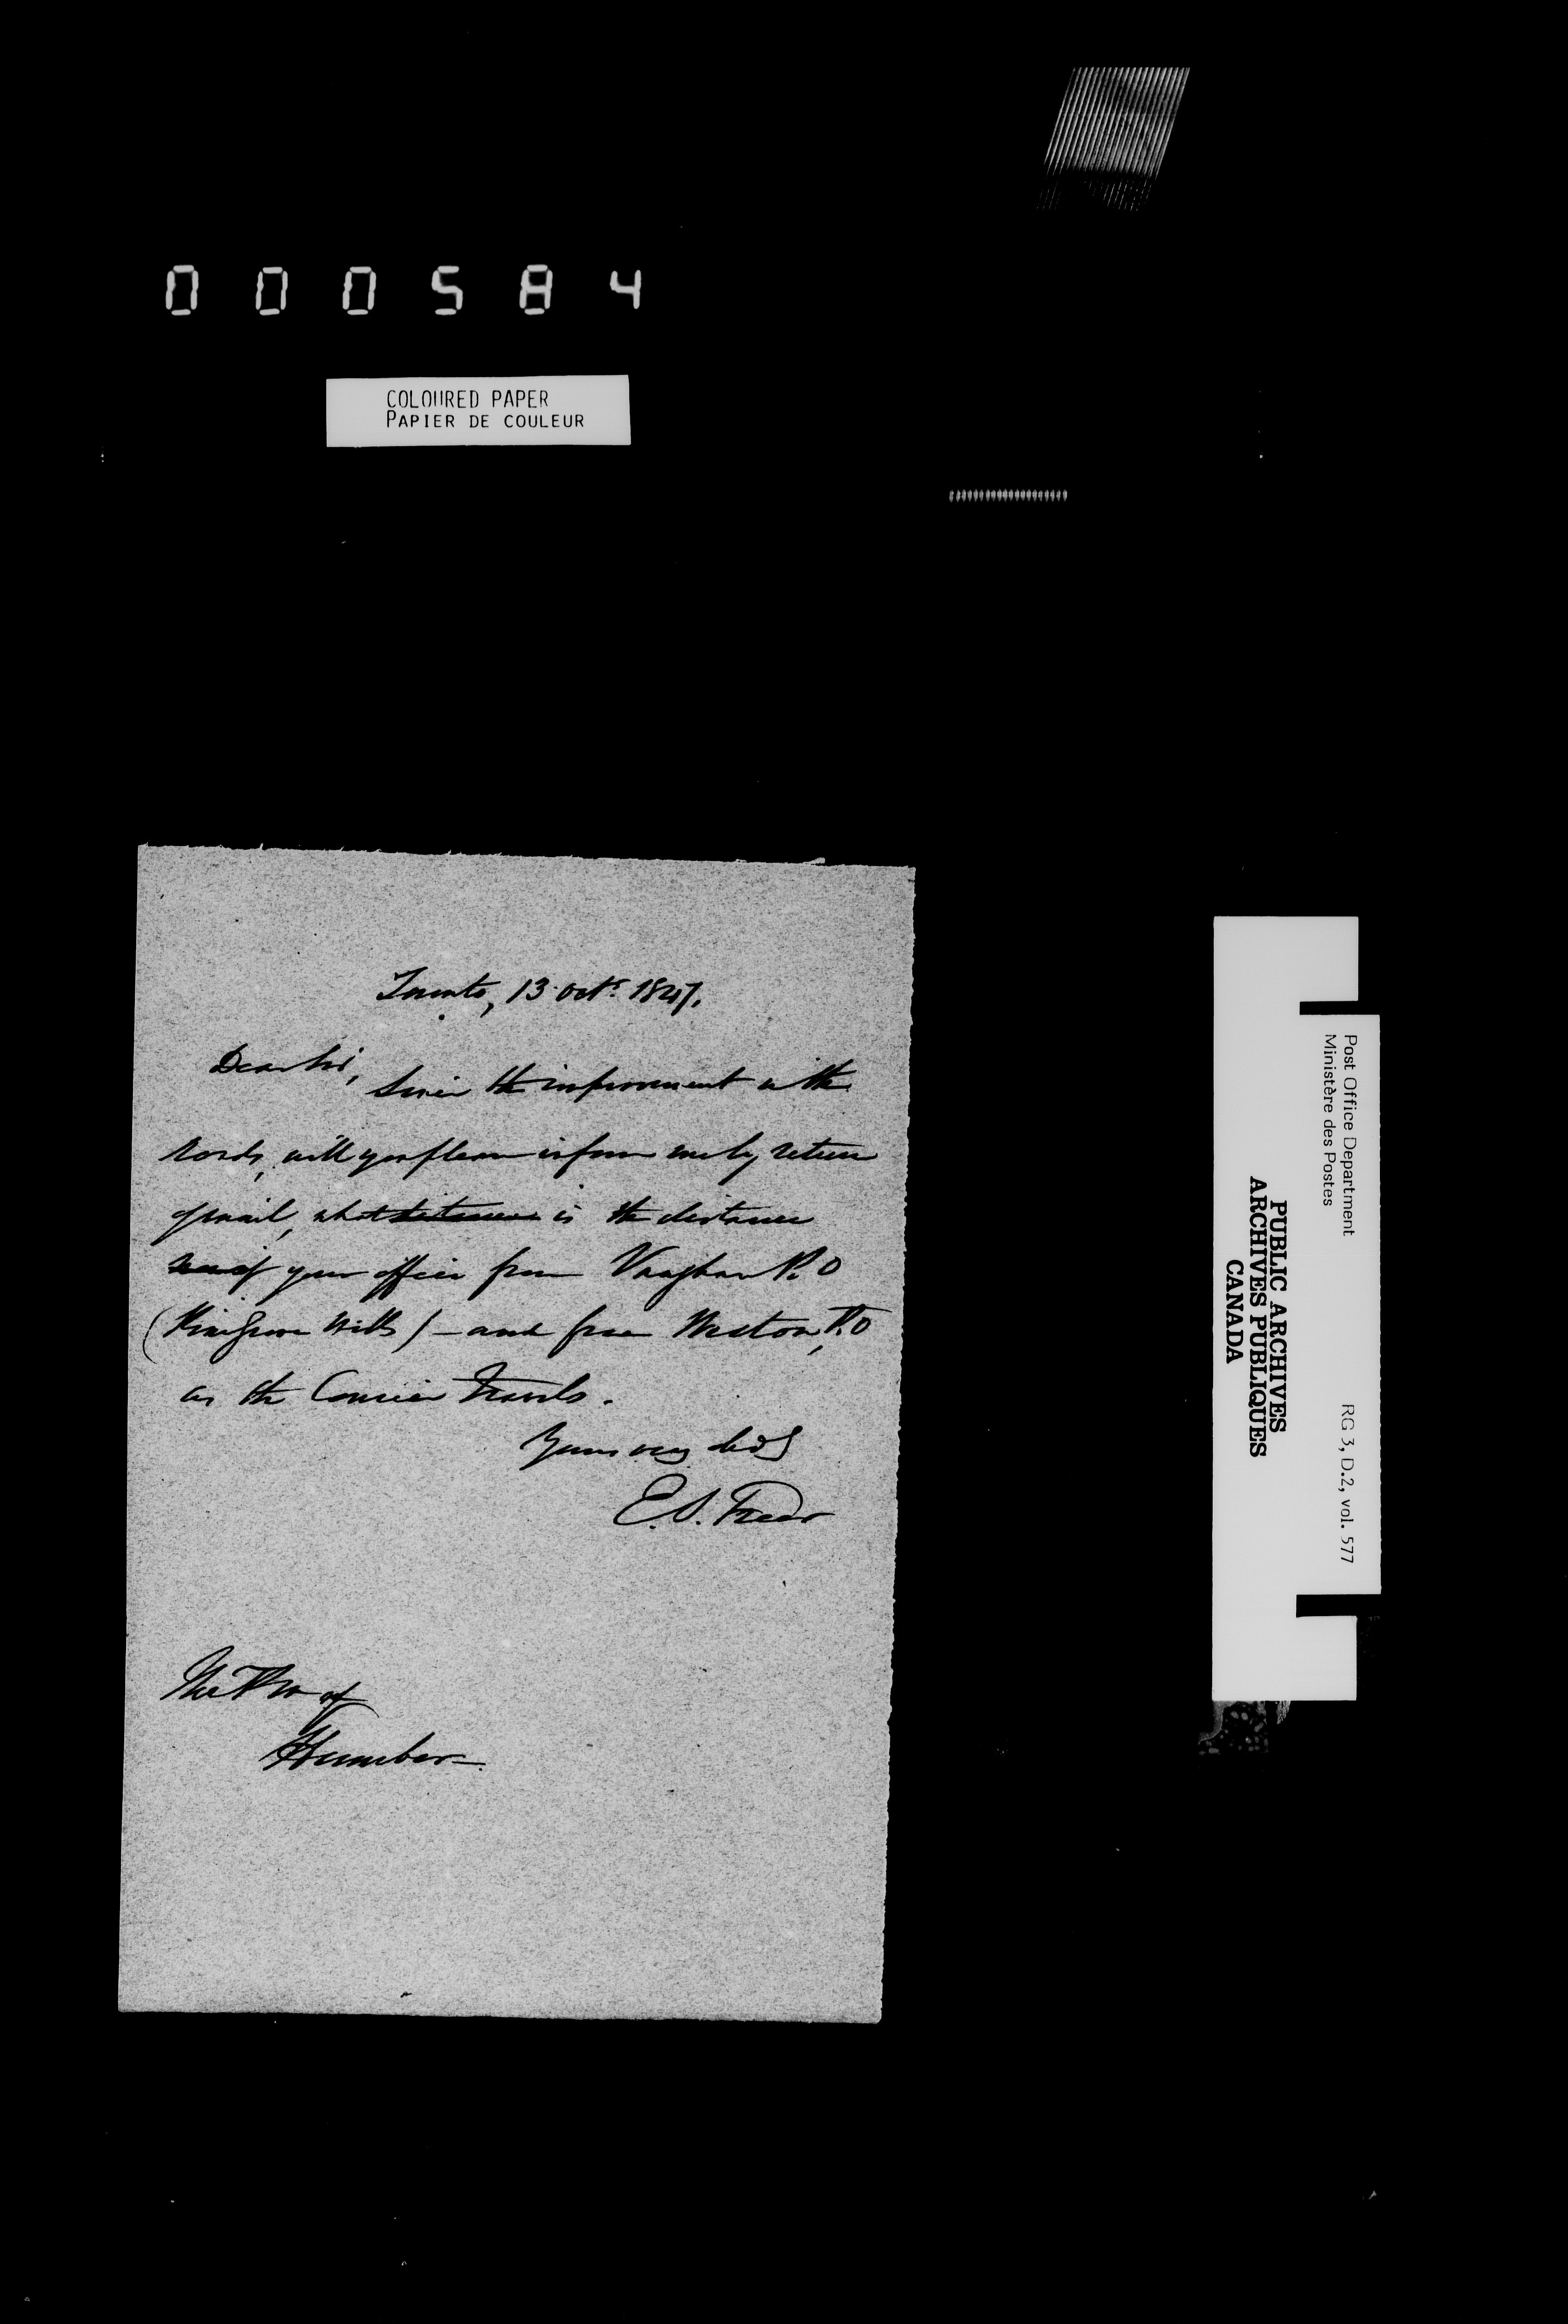 000584
COLOURED PAPER
PAPIER DE COULEUR
Toronto, 13 Octr. 1847.
Dear Sir,
Since the improvement in the
roads, will you please inform me by return
of mail, what distance is the distance
of your office from Vaughan P.O
(Pine Grove Mills) – and from Weston, P.O
as the Courier travels.
Yours very
E.S. Freer
The PM of
Humber –
Post Office Department
Ministère des Postes
RG 3, D.2, vol. 577
PUBLIC ARCHIVES
ARCHIVES PUBLIQUES
CANADA